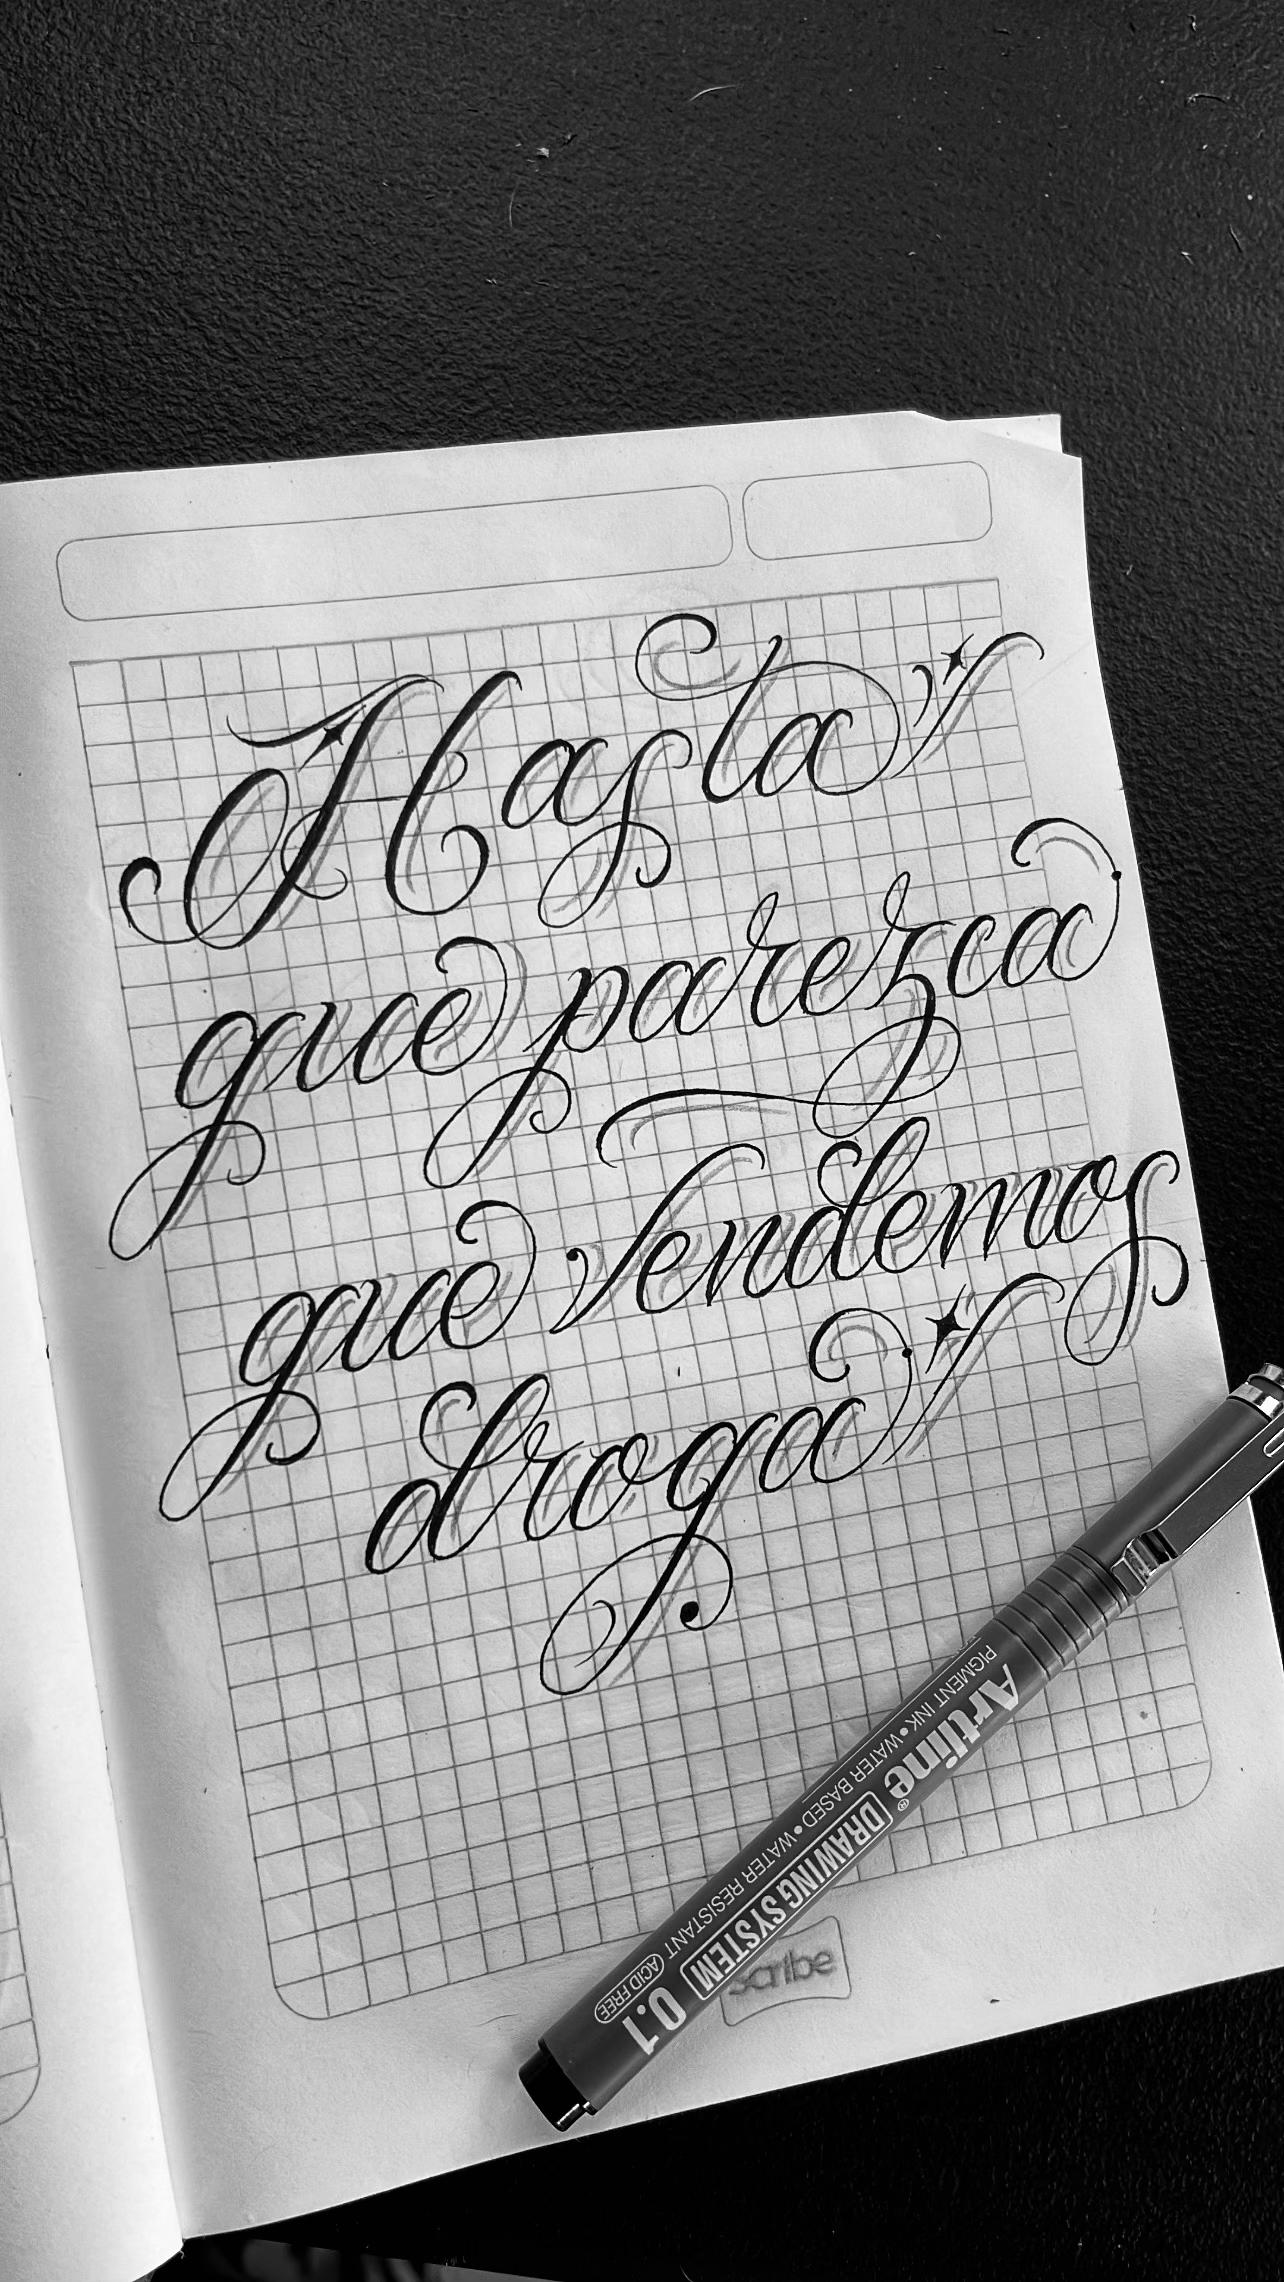 Hasta
que parezca
que Vendemos
droga
Artline® DRAWING SYSTEM 0.1
PIGMENT INK • WATER BASED • WATER RESISTANT ACID FREE
scribe